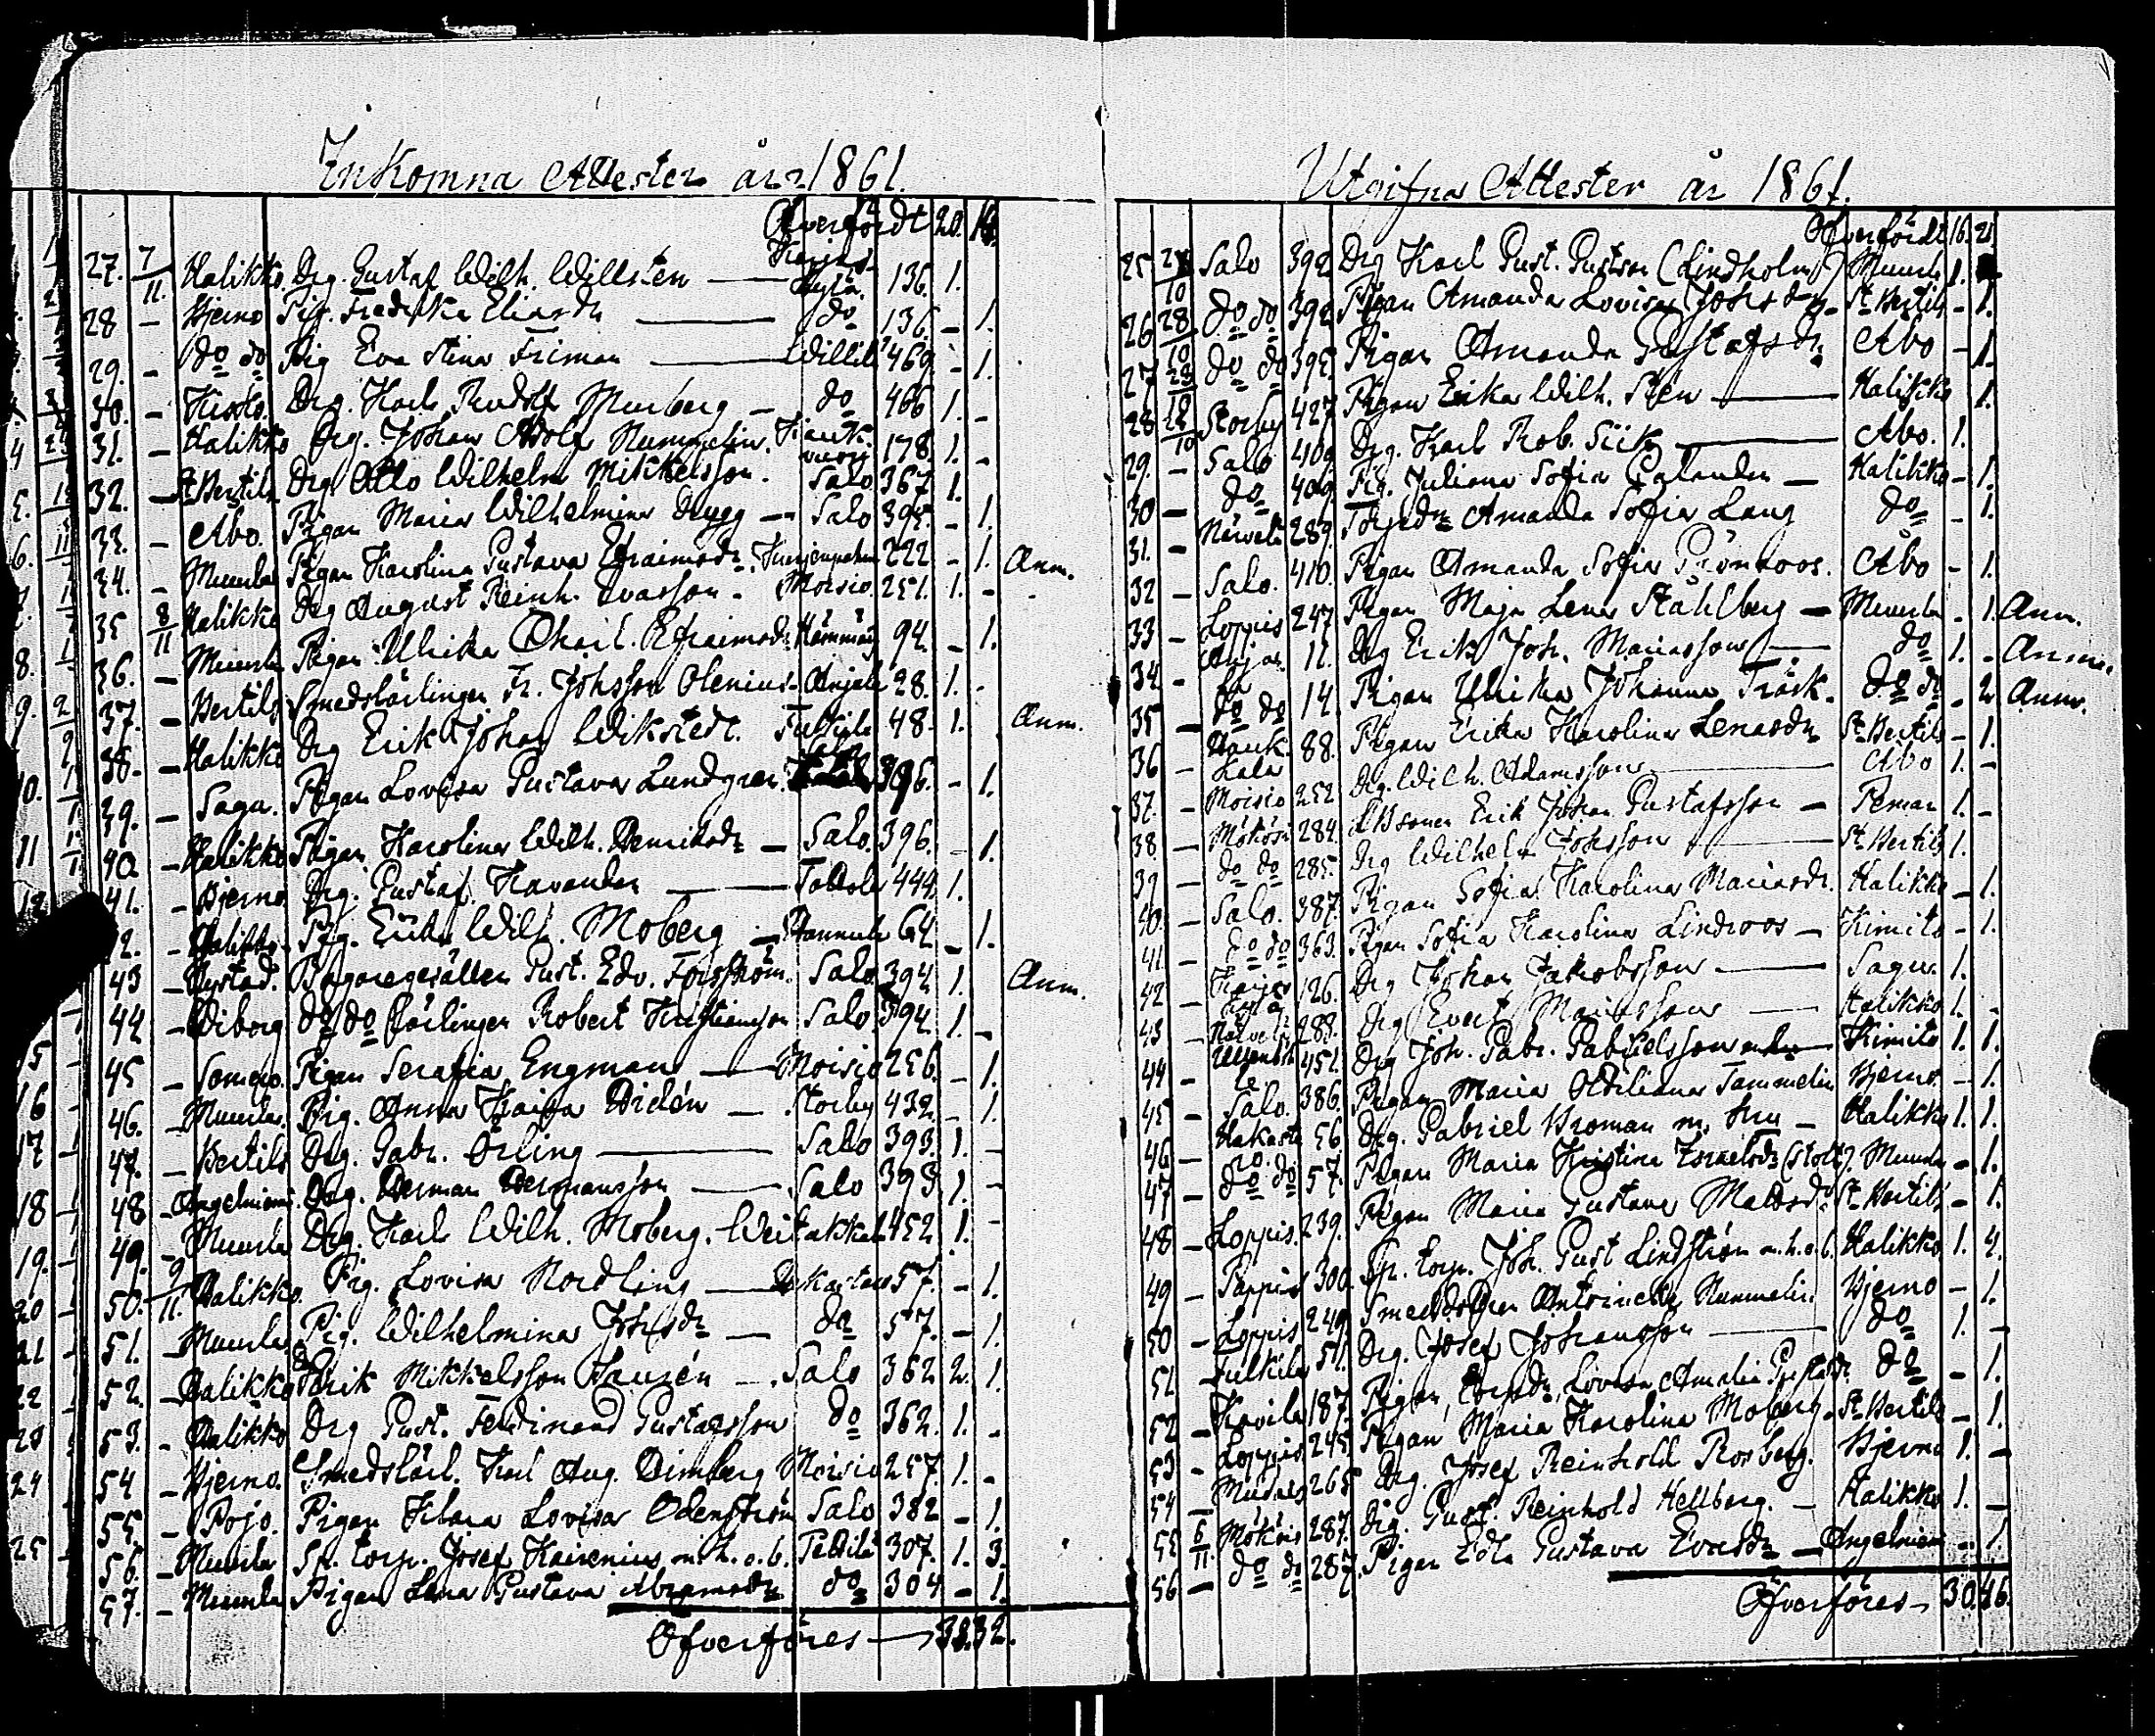 Inkomna Attester år 1861.
Öfverfördt 20. 16.
27. 7/11. Halikko. Drg. Gustaf Wilh. Willsten — Karjaskylä. 136. 1.
28 – Bjerno Pig. Fredrika Eliasdr — do 136. – 1.
29. – do do Pig Eva Stina Friman — Willilä 469. – 1.
30. – Kisko. Drg. Karl Rudolf Murberg — do 466 1. –
31. – Halikko Drg. Johan Adolf Nummelin. 178. 1. –
32. – St Bertils Drg. Otto Wilhelm Mikkelsson. Salo 367 1.
33. – Abo. Pigan Maria Wilhelmina Dygg — Salo 395. – 1.
34. – Muurla Pigan Karolina Gustava Efraimsdr. 222 – 1. Anm.
35 8/11 Halikko Drg August Reinh. Evasson. Moisio. 251. 1. –
36. – Muurla Pigan Ulrika Charl. Efraimsdr. 94. – 1.
37. – Bertils Smedslärlingen Fr. Johsson Olenius. Anjala 28. 1. –
38. – Halikko Drg Erik Johan Wikstedt. Fulkila 48. 1. Anm.
39. – Sagu. Pigan Lovisa Gustava Lundgren. 396. – 1.
40. – Halikko Pigan Karolina Wilh. Henriksdr — Salo. 396. – 1.
41. – Bjerno. Drg. Gustaf Kavander — Tottola 444. 1.
42. – Halikko. Pig. Erika Wilh. Moberg — 64 – 1.
43 – Nystad. Bagaregesällen Gust. Edv. Forsström. Salo. 394 1. Anm.
44 – Wiborg do do lärlingen Robert Kristiansson Salo 394. 1. –
45 – Somero. Pigan Serafia Engman — Moisio 256. – 1.
46. – Muurla. Pig. Anna Kaisa Widen — Storby 432. – 1.
47. – Bertils Drg. Gabr. Örling — Salo 393. 1. –
48 – Angelniemi. Drg. Herman Hermansson — Salo 393. 1. –
49. – Muurla Drg. Karl Wilh. Moberg. Veitakkala 452. 1. –
50. 9/11. Halikko. Pig. Lovisa Nordling — Hakastaro 57. – 1.
51. – Muurla Pig. Wilhelmina Johsdr — do 57. – 1.
52. – Halikko Erik Mikkelsson Hausén — Salo 362 2. 1.
53. – Halikko Drg Gust. Ferdinand Gustafsson do 362. 1. –
54 – Bjerno. Smedslärl. Karl Aug. Dimberg Moisio 257. 1. –
55. – Pojo. Pigan Klara Lovisa Odenström Salo 382 – 1.
56. – Muurla Sp. torp. Josef Kairenius m. h. o. b. Pettilä 307. 1. 3.
57. – Muurla Pigan Lena Gustava Abramsdr do 304 – 1.
Öfverföres — 38. 32.
Utgifna Attester år 1861.
Öfverfördt 16. 21.
25 Salo 392 Drg Karl Gust. Gustson (Lindholm) Muurla 1.
26 28/10 do do 392 Pigan Amanda Lovisa Johsdr — St Bertils – 1.
27 28/10 do do 395. Pigan Amanda Gustafsdr Abo – 1.
28 28/10 Storby 427 Pigan Erika Wilh. Sten — Halikko 1.
29. – Salo 409 Drg. Karl Rob. Siik — Abo. 1.
30 – do 409. Pig. Juliana Sofia Calander — Halikko – 1.
31. – 289. Torpdr Amanda Sofia Lang do – 1.
32 – Salo. 410. Pigan Amanda Sofia Grönroos. Åbo – 1.
33 – Loppis 247 Pigan Maja Lena Stålberg — Muurla – 1. Anm.
34 – Anja 11. Drg Erik Joh. Mariasson — do 1. – Anm.
35 – do do 14. Pigan Ulrika Johanna Träsk. do do – 2. Anm.
36 – 88. Pigan Erika Karolina Lenasdr St Bertils – 1.
37. – Moisio 252 Drg. Wilh. Adamsson — Abo 1. –
38. – 284. Erik Johan Gustafsson — Pemar 1. –
39 – do do 285. Drg Wilhelm Johsson — St Bertils 1.
40. – Salo. 387. Pigan Sofia Karolina Mariasdr. Halikko – 1.
41. – do do 363. Pigan Sofia Karolina Lindroos — Kimito – 1.
42 – 126. Drg Johan Jakobsson — Sagu. 1.
43 – 288. Drg Evert Mariasson — Halikko 1. –
44 – 451. Drg Joh. Gabr. Gabrielsson Kimito 1. 1.
45 – Salo. 386. Pigan Maria Tammelin Bjerno – 1.
46 – Hakastaro. 56 Drg. Gabriel Broman m. hu — Halikko 1. 1.
47 – do do 57. Pigan Maria Kristina Israelsdr (Stolt). Muurla – 1.
48 – Loppis. 239. Pigan Maria Gustava Mattsdr St Bertils – 1.
49 – 300. Sp. torp. Joh. Gust Lindström m. h. o. b. Halikko 1. 4.
50 – Loppis 249. Antoinetta Nummelin Bjerno – 1.
51 – Fulkila 51. Drg. Josef Johansson — do 1. –
52 – Kavila 187. Pigan, Torpdr Lovisa Amalia do – 1.
53 – Loppis 245. Pigan Maria Karolina Moberg. St Bertils – 1.
54 – 265 Drg. Josef Reinhold Rosberg. Bjerno 1. –
55 6/11. 287. Drg. Gust. Reinhold Hellberg. — Halikko 1. –
56 – do do 287. Pigan Edla Gustava Evasdr — Angelniemi – 1.
Öfverföres – 30. 46.